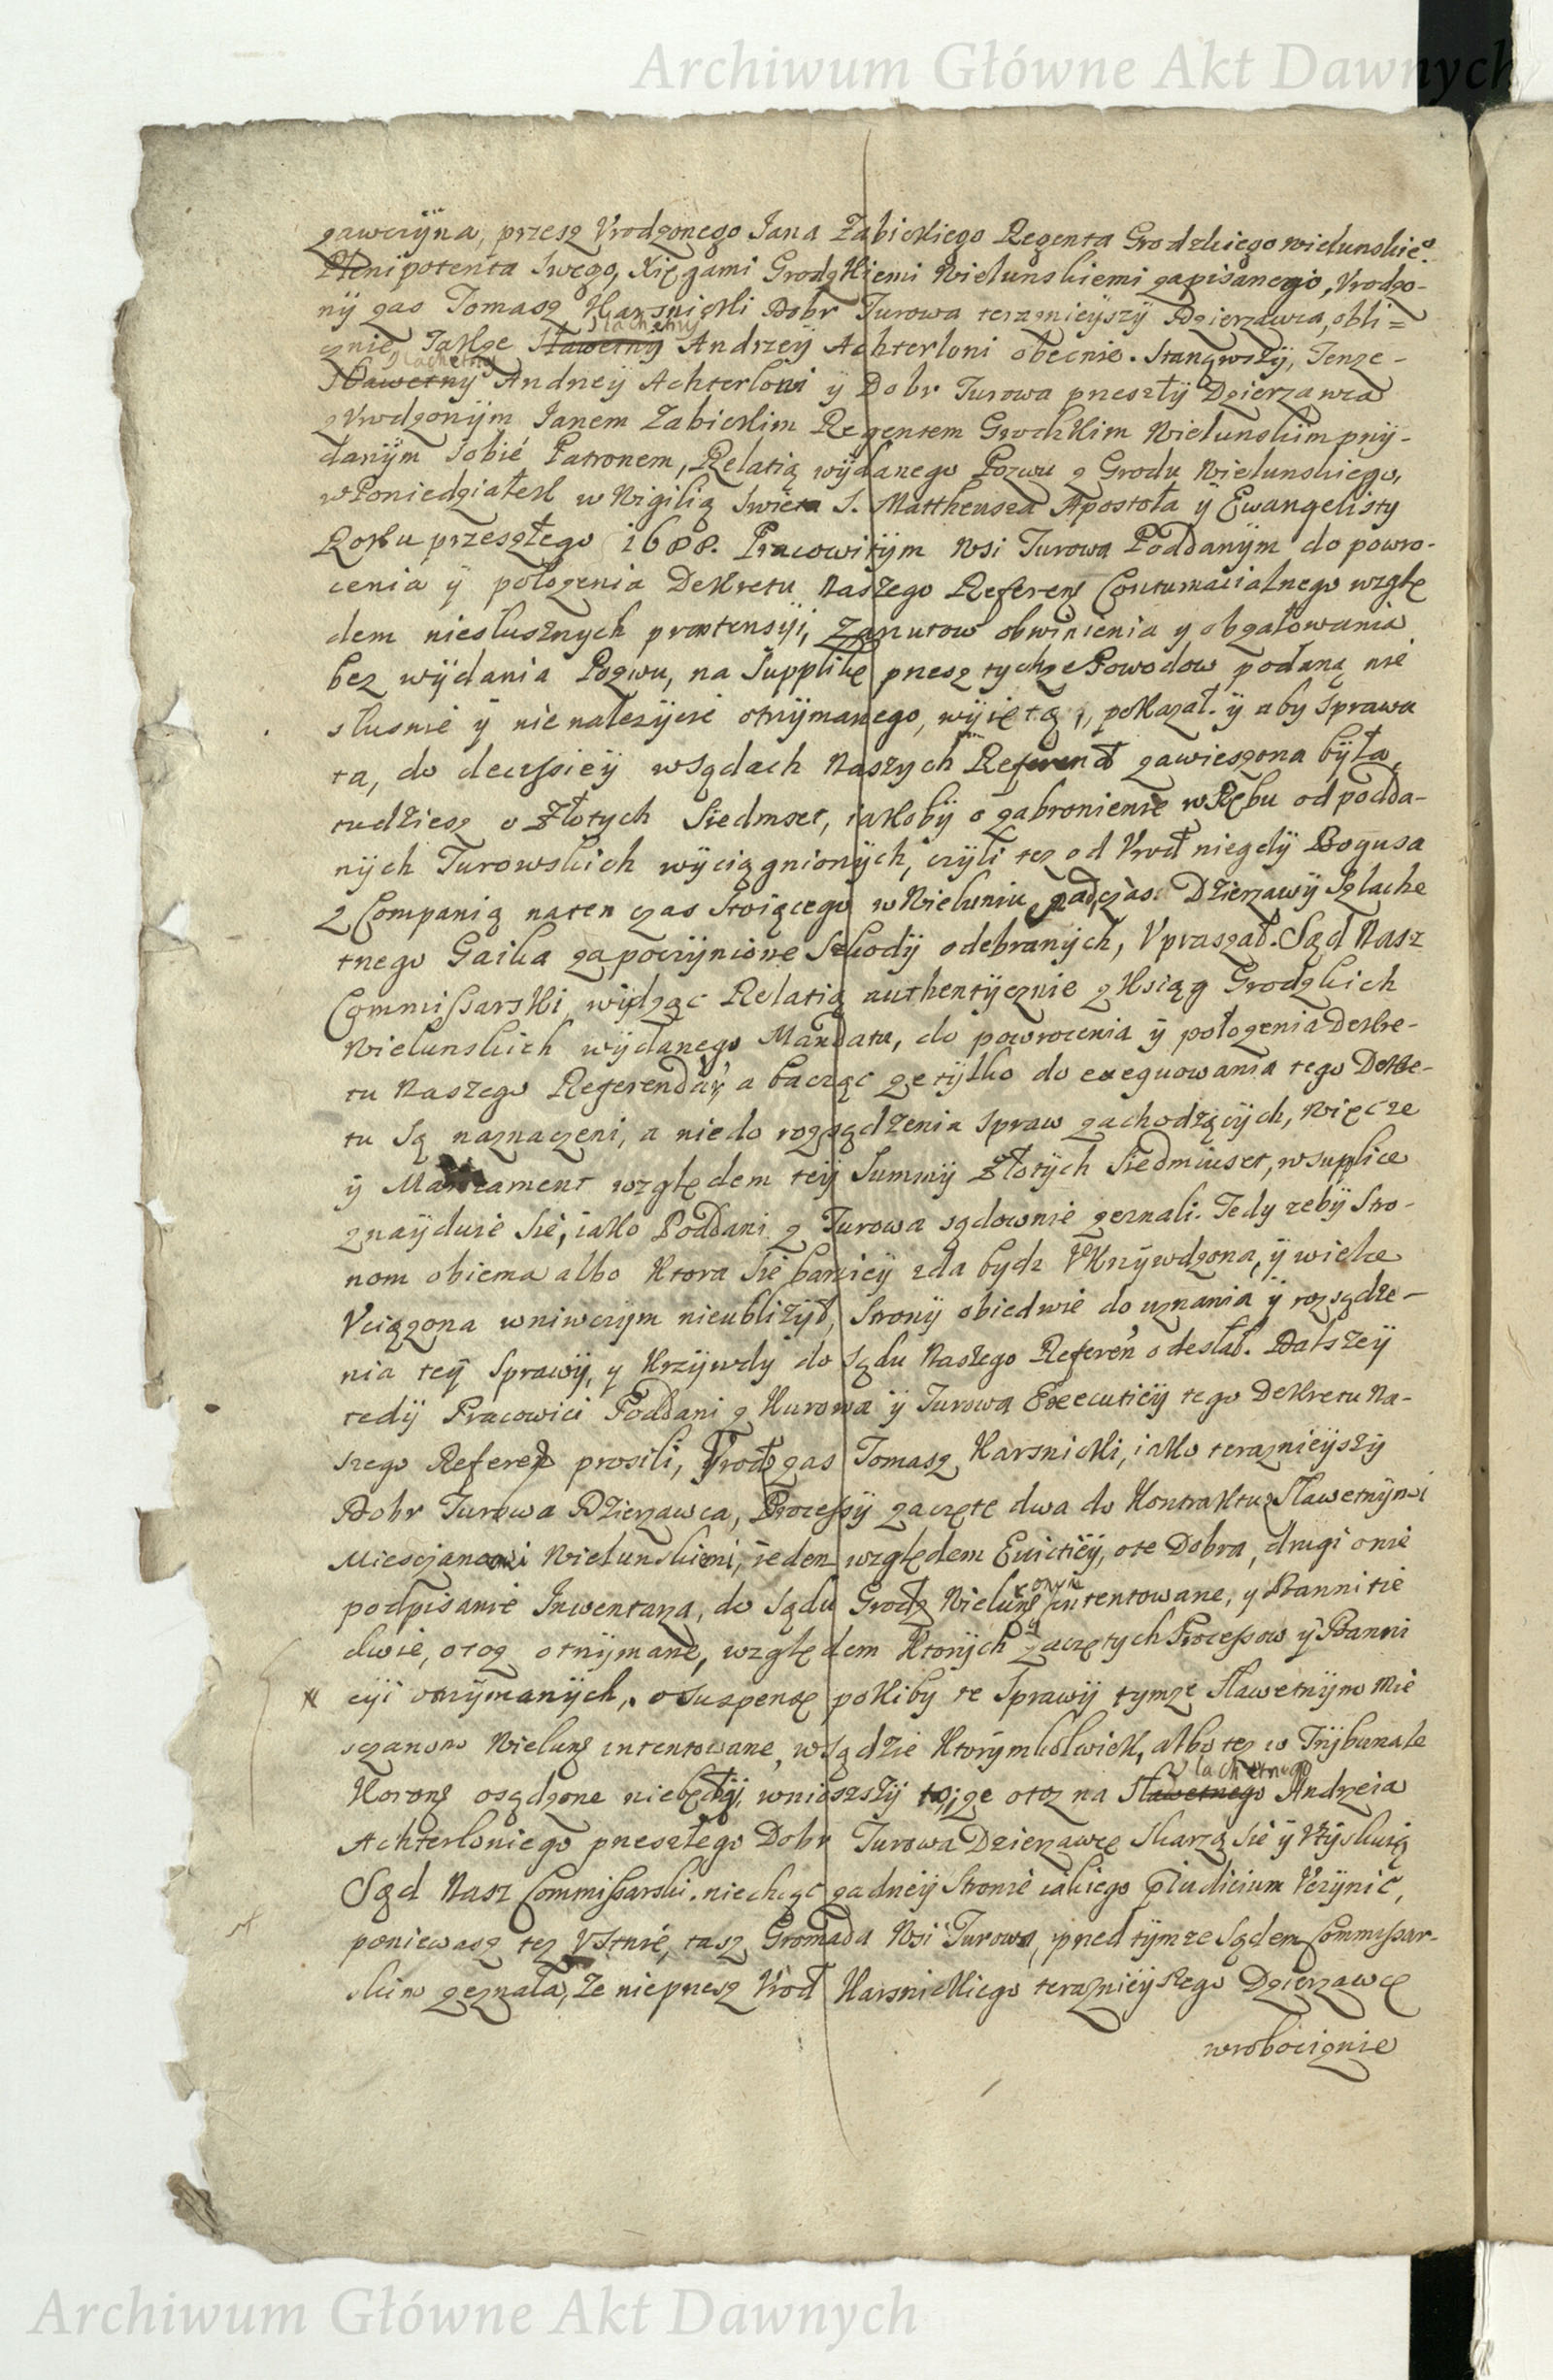 Archiwum Główne Akt Dawnych
zawczyna, przesz Vrodzonego Jana Zabickiego Regenta Grodzkiego wielunskie⁰
Plenipotenta Swego, Xięgami Grodzkiemi Wielunskiemi zapisanego, Vrodzo-
ny zas Tomasz Karsnicki Dobr Turowa teraznieyszÿ Dzierzawca, obli=
cznie, Takze Sławetny Szlachetny Andrzeÿ Achterloni obecnie. Stanąwszÿ, Tenze-
Sławetny Szlachetny Andrzeÿ Achterloni ÿ Dobr Turowa przeszłÿ Dzierzawca
z Vrodzonÿm Janem Zabickim Regentem Grodzkim Wielunskim przÿ-
danÿm Sobie Patronem, Relatią wÿdanego Pozwu z Grodu Wielunskiego,
w Poniedziałek w Wigilią Swięta S. Mattheusza Apostoła ÿ Ewangelisty
Roku przeszłego 1688. Pracowitÿm Wsi Turowa Poddanÿm do powro-
cenia ÿ połozenia Dekretu Naszego Referen Contumacialnego wzglę
dem niesłusznych praetensÿi, Zarzutow obwinienia y obzałowania
bez wÿdania Pozwu, na Supplikę przesz tychze Powodow podaną nie
słusznie ÿ nie nalezÿcie otrzÿmanego, wÿiętą, pokazał. ÿ aby Sprawa
ta, do decissieÿ w Sądach Naszych Referend zawieszona bÿła,
tudziesz o Złotych Siedmset, iakobÿ o zabronienie wRębu od podda-
nÿch Turowskich wÿciągnionÿch, czÿli tez od Vrod niegdÿ Bogusa
z Companią naten czas Stoiącego w Wieluniu, podczas Dzierzawÿ Szlache
tnego Gaika za poczÿnione Szkodÿ odebranÿch, Vpraszał. Sąd Nasz
Commissarski, widząc Relatią authentÿcznie z Xsiąg Grodzkich
Wielunskich wÿdanego Mandatu, do powrocenia ÿ połozenia Dekre-
tu Naszego Referendar, a bacząc ze tÿlko do exequowania tego Dekre-
tu Są naznaczeni, a niedo rozsądzenia Spraw zachodzącÿch, Więc ze
ÿ względem teÿ Summÿ Złotÿch Siedmiuset, w suplice
znaÿduie Sie, iako Poddani z Turowa sądownie zeznali. Tedy zebÿ Stro-
nom obiema albo Ktora Sie barzieÿ zda bydz VKrzÿwdzona, ÿ wielce
Vciązona wniwczÿm nieubliżÿł, Stronÿ obiedwie do uznania ÿ rozsądze-
nia teÿ Sprawÿ, y Krzÿwdy do Sądu Naszego Referen odesłał. Dalszeÿ
tedÿ Pracowici Poddani z Kurowa ÿ Turowa Executieÿ tego Dekretu Na-
szego Referen prosili, Vrod zas Tomasz Karsnicki, iako teraznieÿszÿ
Dobr Turowa Dzierzawca, Processÿ zaczęte dwa do Kontraktu z Sławetnÿmi
Miesczanami Wielunskiemi, ieden względem Euictieÿ, ote Dobra, drugi onie
podpisanie Inwentarza, do Sądu Grodz Wielunskiego intentowane, y Bannitie
dwie, otoz otrzÿmane, względem Ktorÿch zaczętych Processow ÿ Banni
cÿi otrzÿmanÿch, o Suspensę pokiby te Sprawÿ tymze Sławetnÿm Mie
sczanom Wielun intentowane, w Sądzie Ktorÿmkolwiek, albo tez w Trÿbunale
Koron osądzone niebędą, wnioszszÿ, ze otoz na Sławetnego Szlachetnego Andrzeia
Achterloniego przeszłego Dobr Turowa Dzierzawcę Skarzą Sie ÿ Vtÿskuią
Sąd Nasz Commissarski. niechcąc zadneÿ Stronie iakiego Praeiudicium Vczynic,
poniewasz tez VStnie, tasz Gromada Wsi Turowa, przed tÿmze Sądem Commissar-
skim zeznała, ze nieprzesz Vrod Karsnickiego teraznieÿszego Dzierzawcę
wrobociznie
Archiwum Główne Akt Dawnych